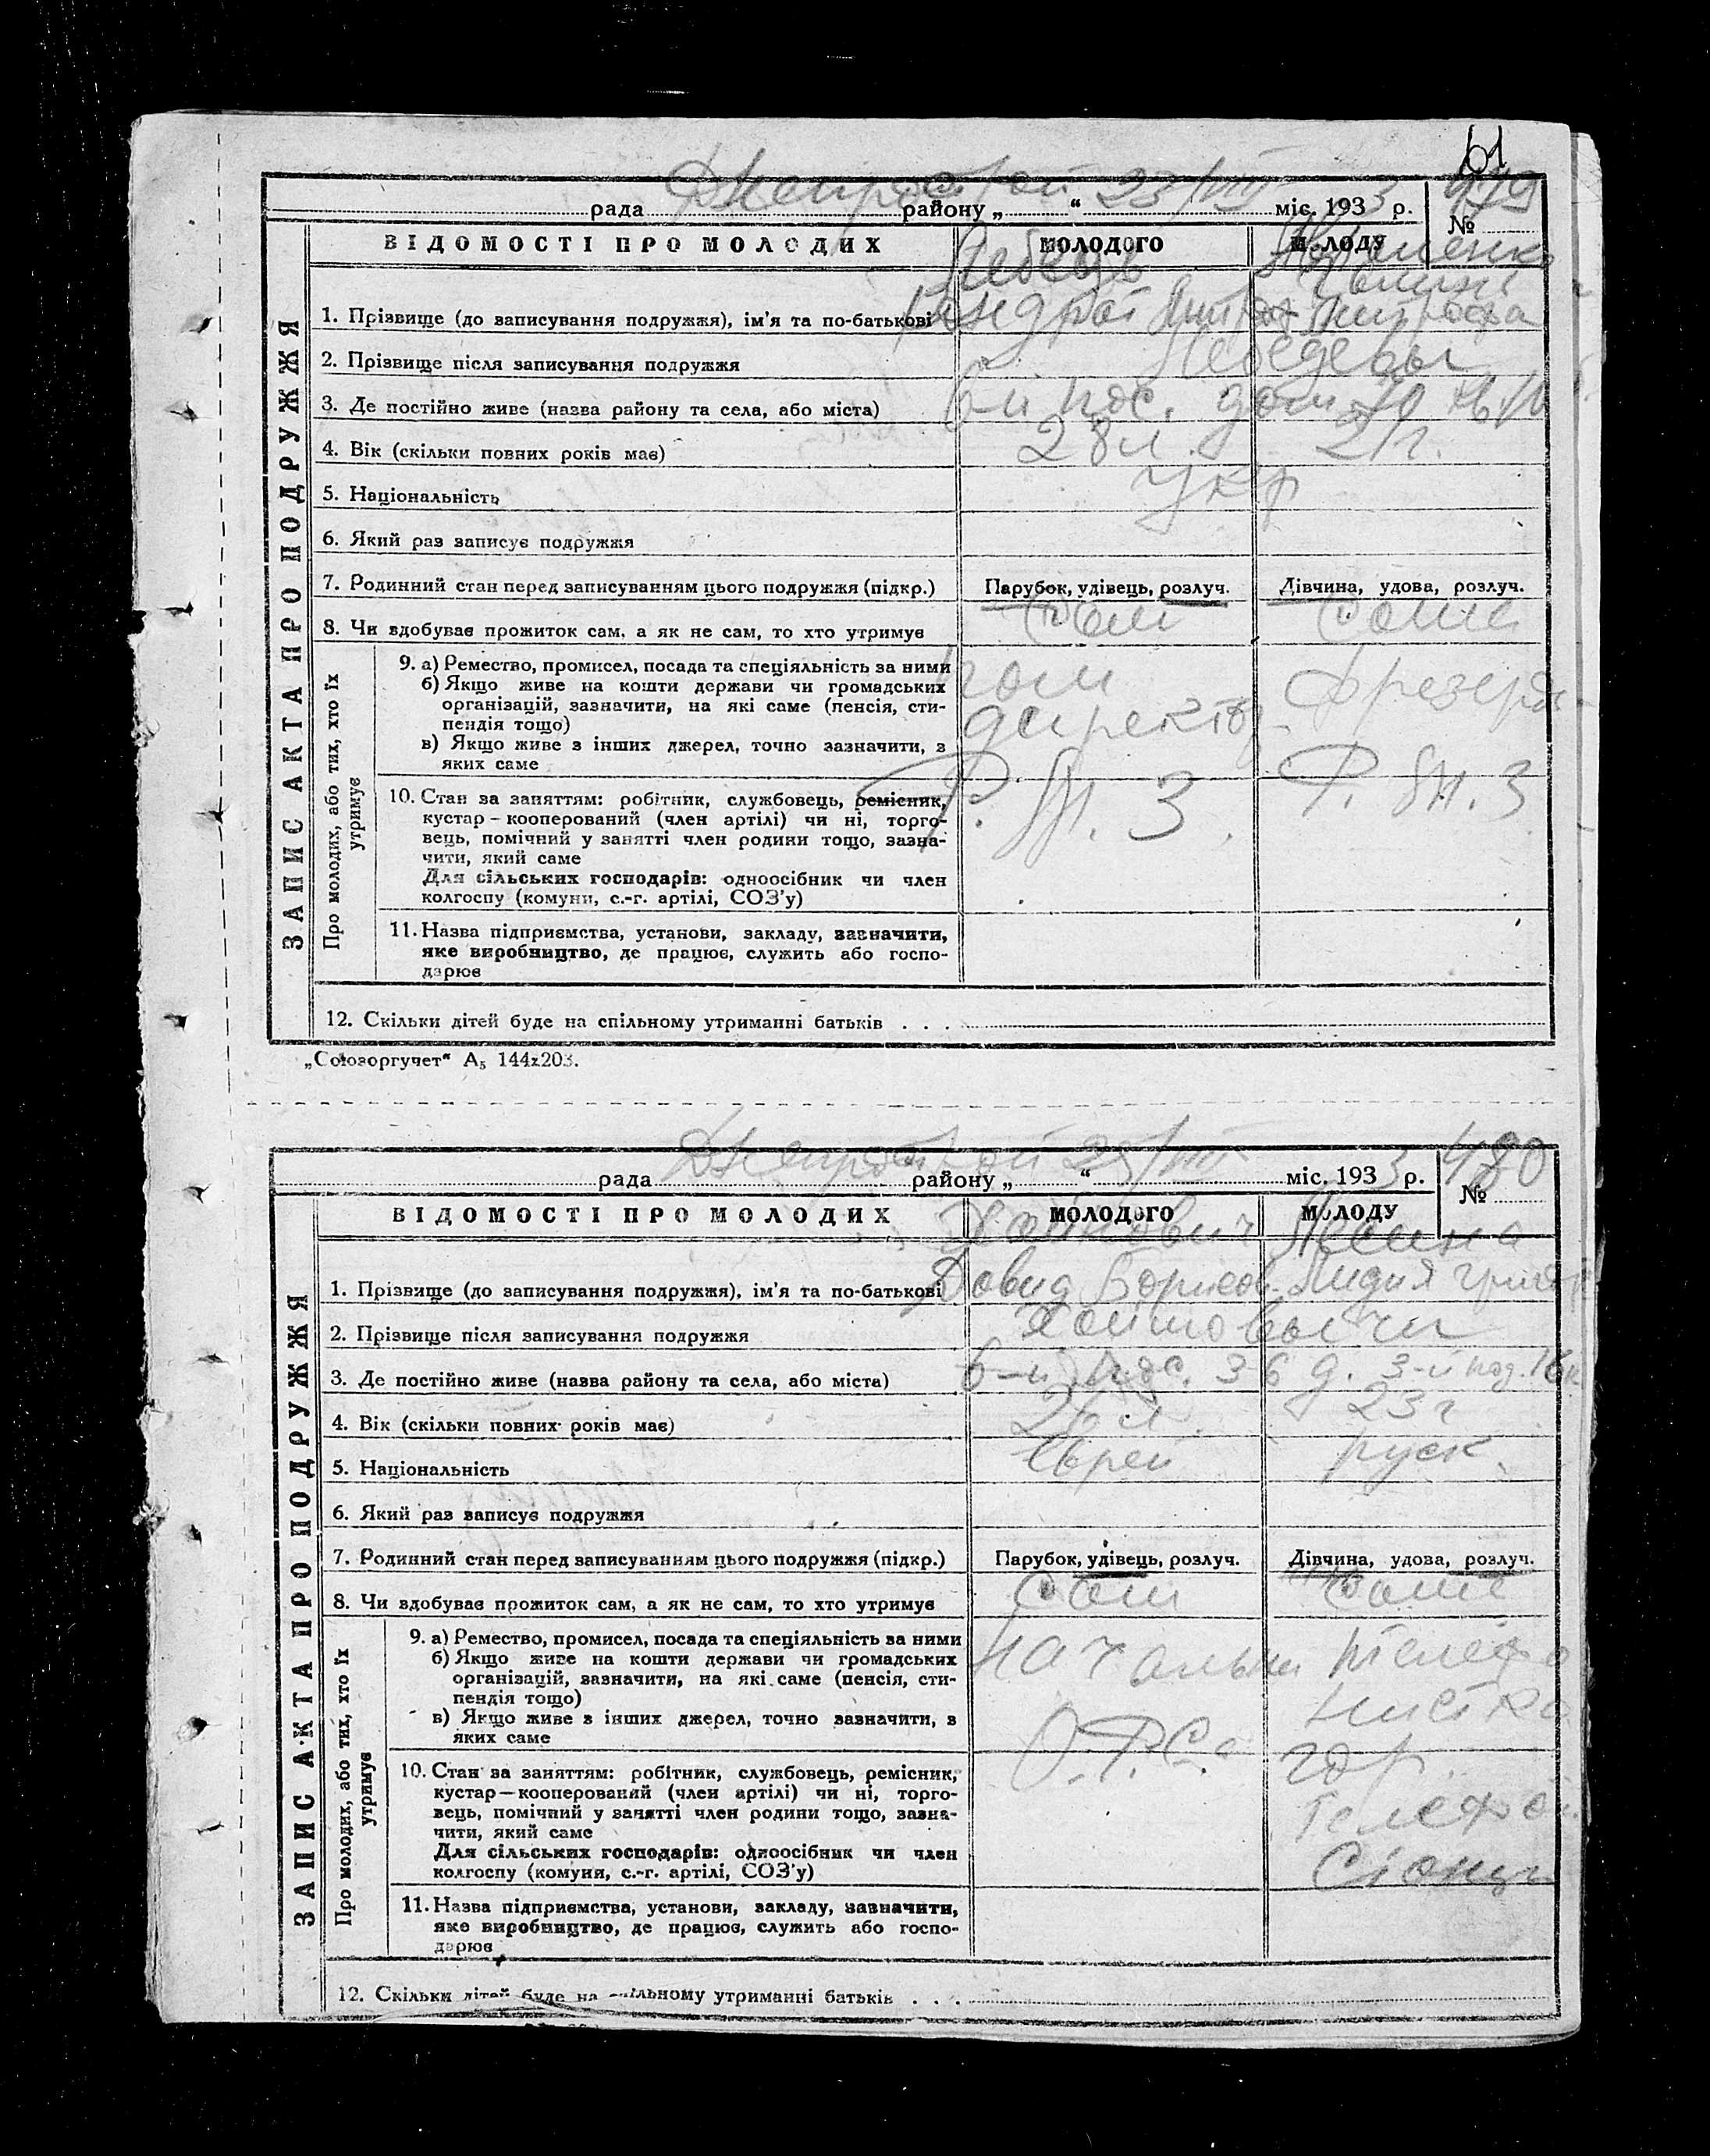 61
Днепрострой 23/VIII 479
рада району „ “ міс. 1933 р. №
ВІДОМОСТІ ПРО МОЛОДИХ МОЛОДОГО МОЛОДУ
1. Прізвище (до записування подружжя), ім'я та по-батькові
2. Прізвище після записування подружжя Лебедевы
3. Де постійно живе (назва району та села, або міста) 6-й пос. дом 70 кв
4. Вік (скільки повних років має) 28 л. 21 г.
5. Національність Укр
6. Який раз записує подружжя
7. Родинний стан перед записуванням цього подружжя (підкр.) Парубок, удівець, розлуч. Дівчина, удова, розлуч.
8. Чи здобуває прожиток сам, а як не сам, то хто утримує сам сама
ЗАПИС АКТА ПРО ПОДРУЖЖЯ
Про молодих, або тих, хто їх утримує
9. а) Ремество, промисел, посада та спеціяльність за ними пом
б) Якщо живе на кошти держави чи громадських
організацій, зазначити, на які саме (пенсія, сти-
пендія тощо) директор
в) Якщо живе з інших джерел, точно зазначити, з
яких саме
10. Стан за заняттям: робітник, службовець, ремісник,
кустар – кооперований (член артілі) чи ні, торго-
вець, помічний у занятті член родини тощо, зазна-
чити, який саме
Для сільських господарів: одноосібник чи член
колгоспу (комуни, с.-г. артілі, СОЗ'у)
11. Назва підприємства, установи, закладу, зазначити,
яке виробництво, де працює, служить або госпо-
дарює
12. Скільки дітей буде на спільному утриманні батьків . . .
„Союзоргучет“ А5 144х203.
Днепрострой /VIII 480
рада району „ “ міс. 1933 р. №
ВІДОМОСТІ ПРО МОЛОДИХ МОЛОДОГО МОЛОДУ
Хаймович
1. Прізвище (до записування подружжя), ім'я та по-батькові Давид Борисов Лидия Григор
2. Прізвище після записування подружжя Хаймовичи
3. Де постійно живе (назва району та села, або міста) 6-й пос. 36 д. 3-й под. 16 к
4. Вік (скільки повних років має) 26 л. 23 г
5. Національність Еврей русск.
6. Який раз записує подружжя
7. Родинний стан перед записуванням цього подружжя (підкр.) Парубок, удівець, розлуч. Дівчина, удова, розлуч.
8. Чи здобуває прожиток сам, а як не сам, то хто утримує сам сама
ЗАПИС АКТА ПРО ПОДРУЖЖЯ
Про молодих, або тих, хто їх утримує
9. а) Ремество, промисел, посада та спеціяльність за ними
б) Якщо живе на кошти держави чи громадських начальник телефо
організацій, зазначити, на які саме (пенсія, сти-
пендія тощо) нистка
в) Якщо живе з інших джерел, точно зазначити, з
яких саме О.Р.С.
10. Стан за заняттям: робітник, службовець, ремісник, гор.
кустар—кооперований (член артілі) чи ні, торго-
вець, помічний у занятті член родини тощо, зазна- телефон
чити, який саме
Для сільських господарів: одноосібник чи член
колгоспу (комуни, с.-г. артілі, СОЗ'у) Станци
11. Назва підприємства, установи, закладу, зазначити,
яке виробництво, де працює, служить або госпо-
дарює
12. Скільки дітей буде на спільному утриманні батьків . . .